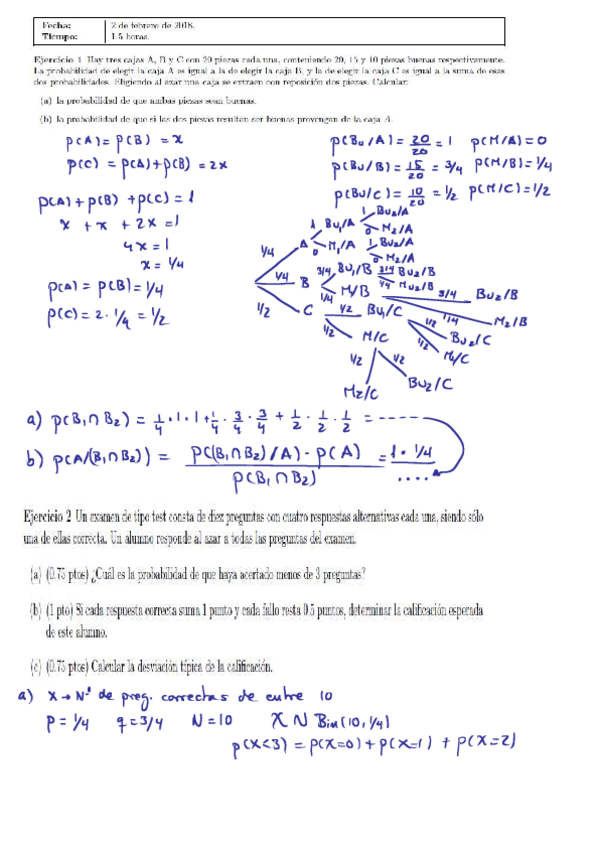 Fecha: 2 de febrero de 2018.
Tiempo: 1.5 horas.
Ejercicio 1 Hay tres cajas A, B y C con 20 piezas cada una, conteniendo 20, 15 y 10 piezas buenas respectivamente.
La probabilidad de elegir la caja A es igual a la de elegir la caja B, y la de elegir la caja C es igual a la suma de esas
dos probabilidades. Eligiendo al azar una caja se extraen con reposición dos piezas. Calcular:
(a) la probabilidad de que ambas piezas sean buenas.
(b) la probabilidad de que si las dos piezas resultan ser buenas provengan de la caja A.
p(A) = p(B) = x
p(C) = p(A)+p(B) = 2x
p(A)+p(B) +p(C)=1
x + x + 2x =1
4x = 1
x = 1/4
p(A) = p(B) = 1/4
p(C) = 2 · 1/4 = 1/2
p(Bu/A) = 20/20 = 1 p(M/A)=0
p(Bu/B) = 15/20 = 3/4 p(M/B)=1/4
p(Bu/C) = 10/20 = 1/2 p(M/C)=1/2
1 Bu2/A
1 Bu1/A 0 M2/A
1/4 A 0 M1/A 1 Bu2/A
0 M2/A
1/4 B 3/4 Bu1/B 3/4 Bu2/B
1/4 Mu2/B
1/4 M/B 3/4 Bu2/B
1/4 M2/B
1/2 C 1/2 Bu1/C 1/2 Bu2/C
1/2 M2/C
1/2 M/C
1/2 M2/C 1/2 Bu2/C
a) p(B1∩B2) = 1/4 · 1 · 1 + 1/4 · 3/4 · 3/4 + 1/2 · 1/2 · 1/2 = -----
b) p(A/(B1∩B2)) = p((B1∩B2)/A) · p(A) / p(B1∩B2) = 1 · 1/4 / ....
Ejercicio 2 Un examen de tipo test consta de diez preguntas con cuatro respuestas alternativas cada una, siendo sólo
una de ellas correcta. Un alumno responde al azar a todas las preguntas del examen.
(a) (0.75 ptos) ¿Cuál es la probabilidad de que haya acertado menos de 3 preguntas?
(b) (1 pto) Si cada respuesta correcta suma 1 punto y cada fallo resta 0.5 puntos, determinar la calificación esperada
de este alumno.
(c) (0.75 ptos) Calcular la desviación típica de la calificación.
a) X → Nº de preg. correctas de entre 10
p = 1/4 q = 3/4 N = 10 X ~ Bin(10, 1/4)
p(X<3) = p(X=0) + p(X=1) + p(X=2)